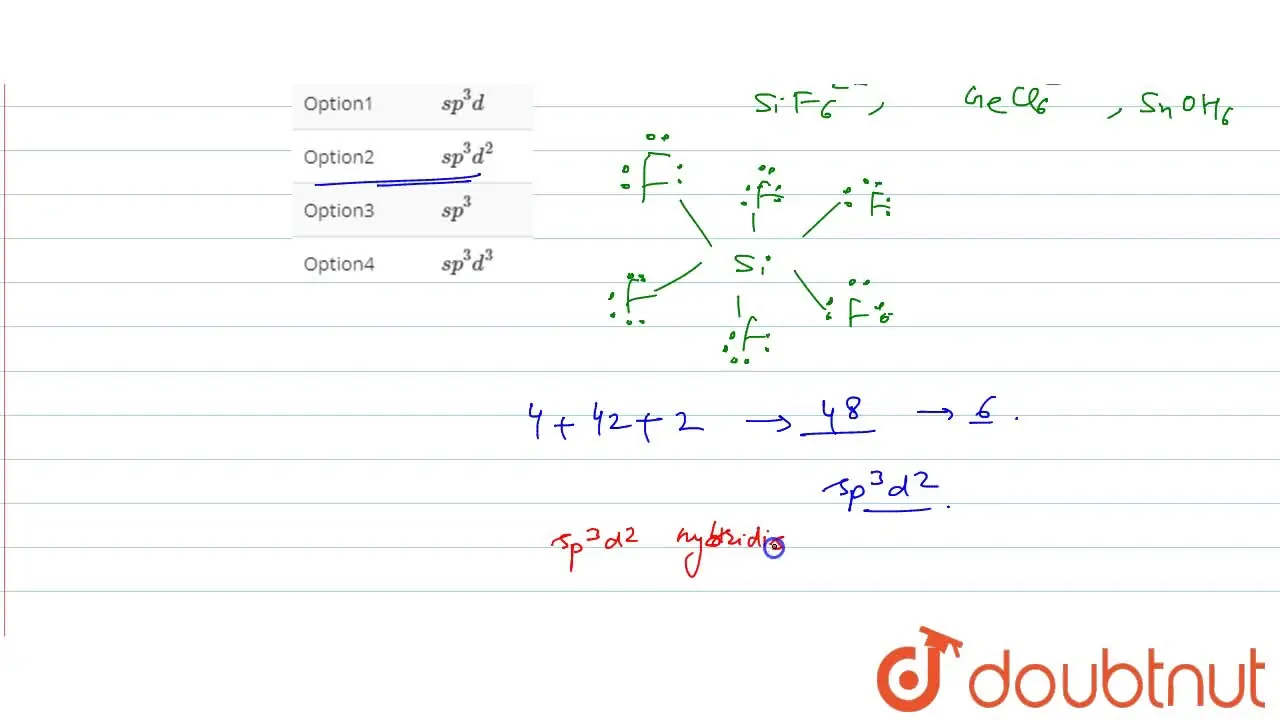 Option1 sp³d
Option2 sp³d²
Option3 sp³
Option4 sp³d³
SiF₆²⁻, GeCl₆⁻, SnOH₆
F F F
Si
F F F
4 + 42 + 2 → 48 → 6.
sp³d².
sp³d² hybridis
doubtnut